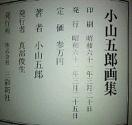 小山五郎画集
印刷 昭和六十一年二月二十日
発行 昭和六十一年二月二十五日
定価 参万円
著者 小山五郎
発行者 真部俊生
発行所